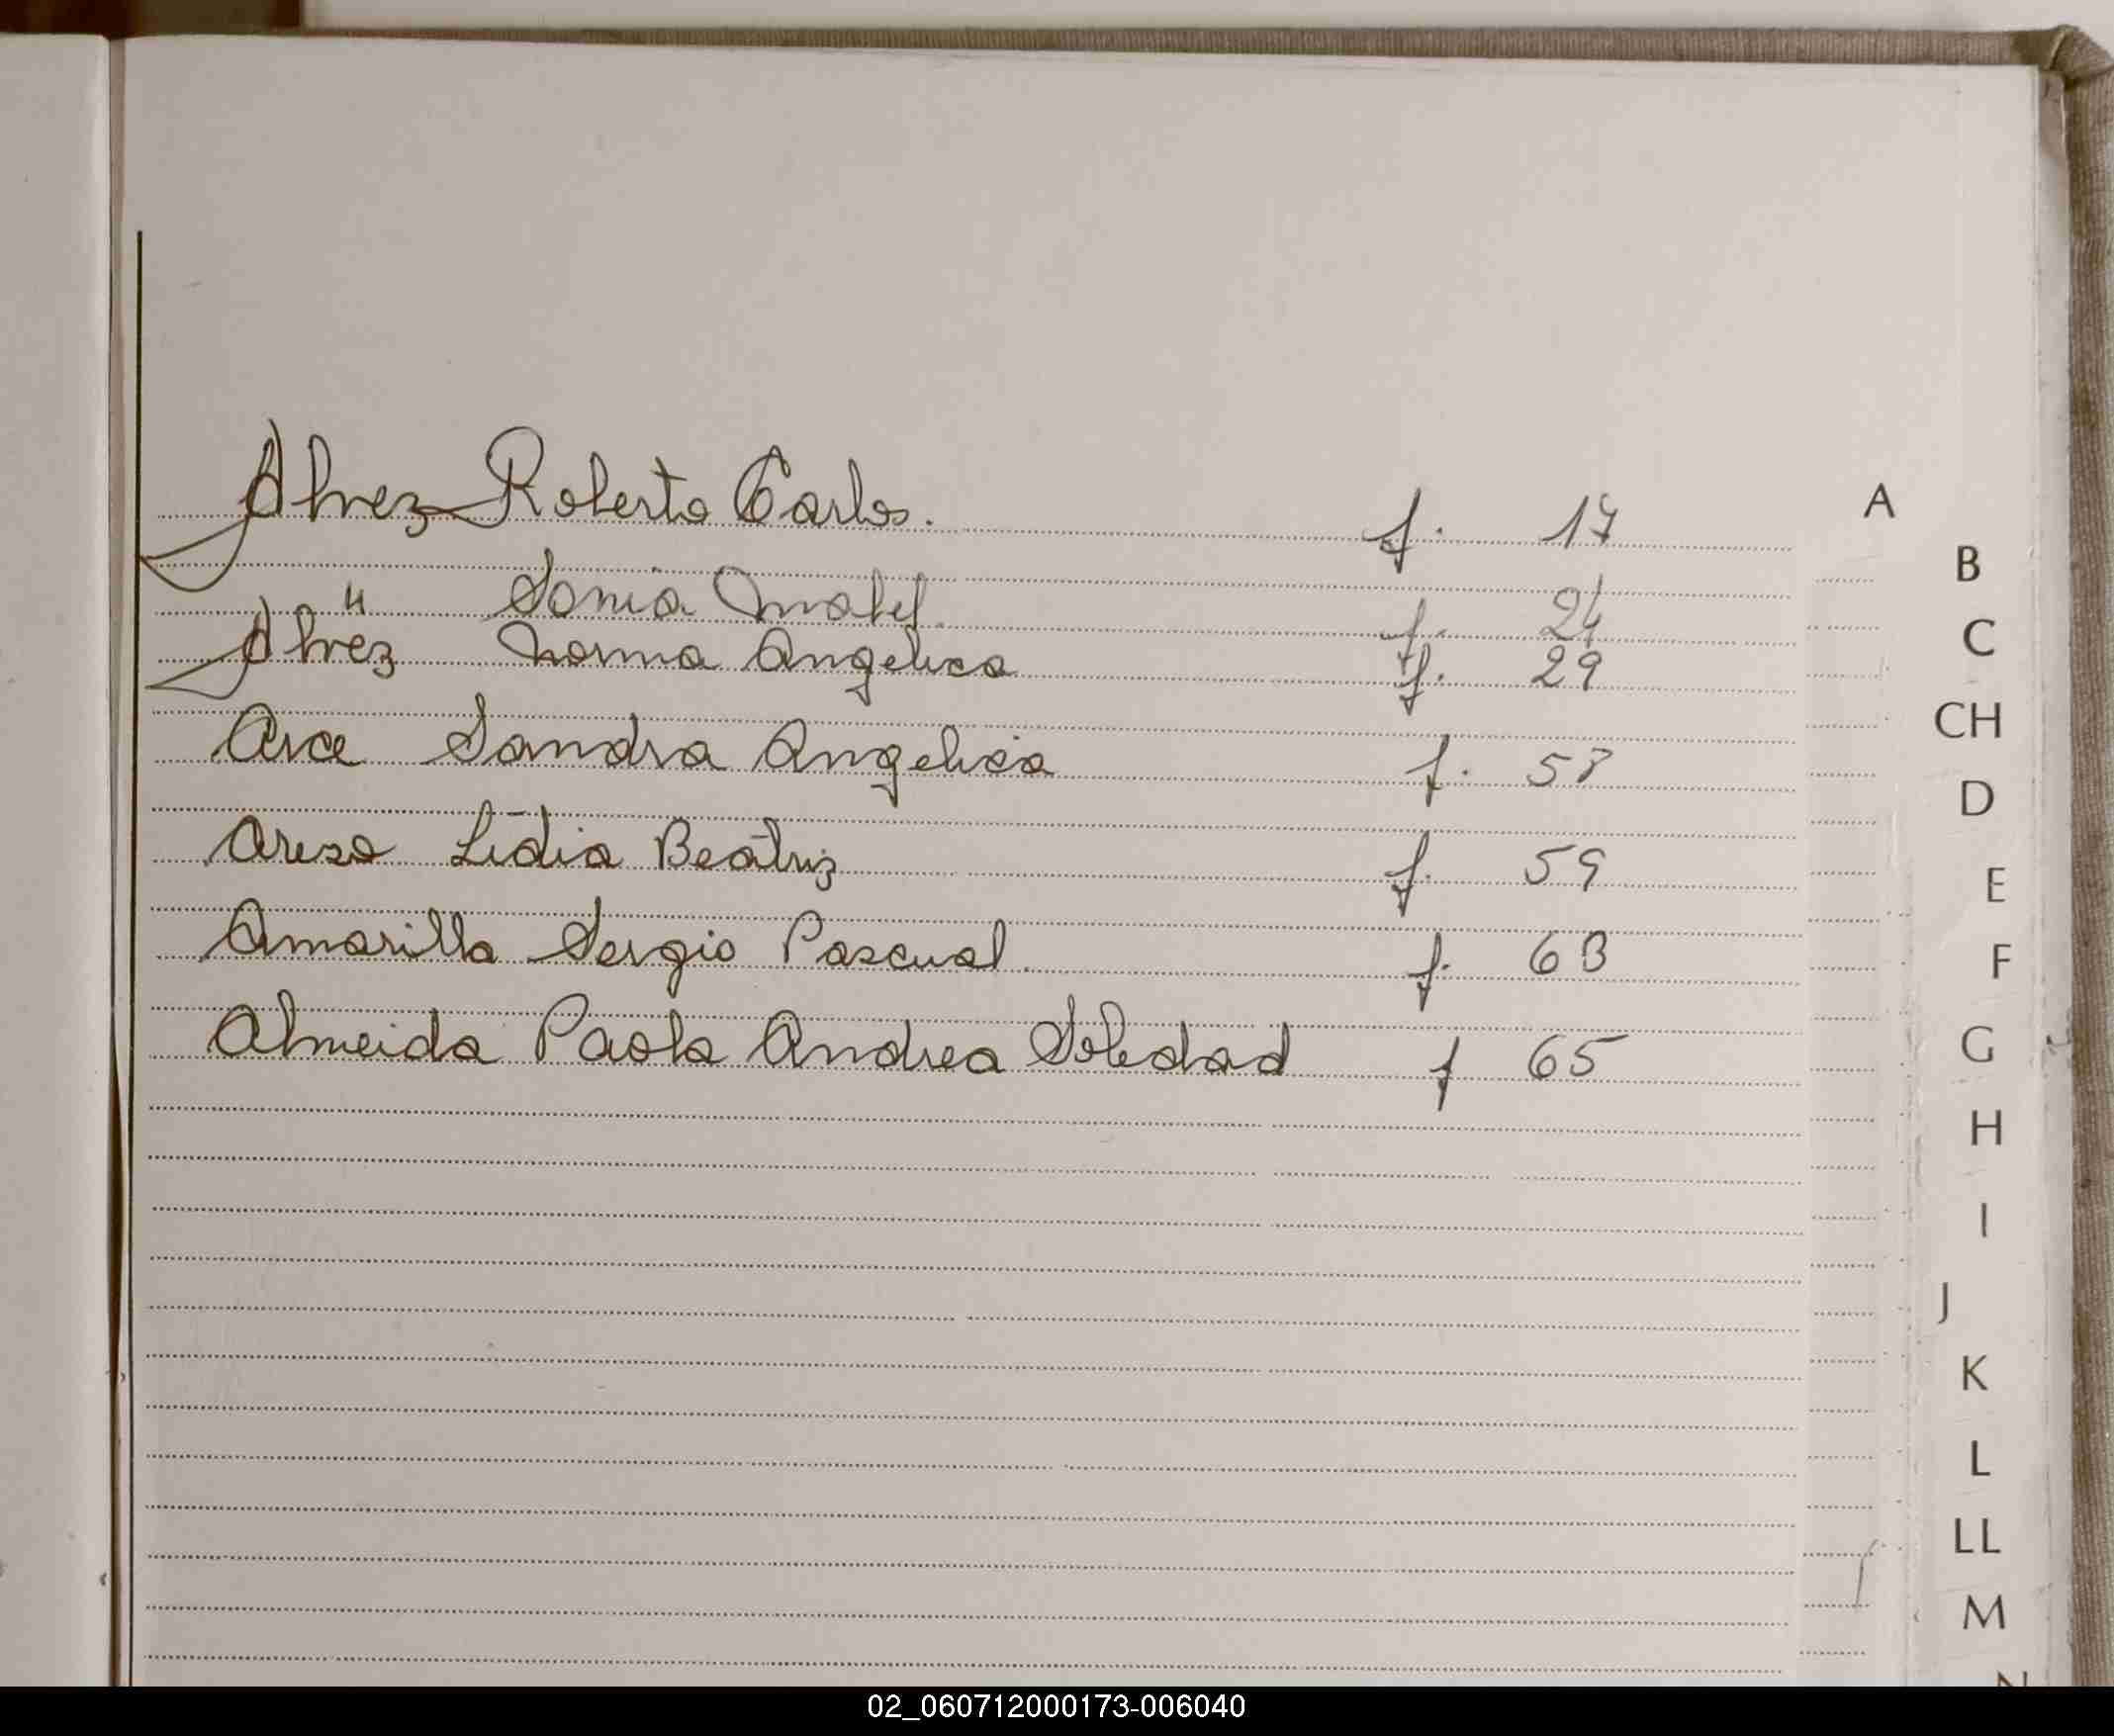 Alvez Roberto Carlos. f. 17
" Sonia Mabel. f. 24
Alvez Norma Angelica f. 29
Arce Sandra Angelica f. 57
Lidia Beatriz f. 59
Amarilla Sergio Pascual f. 63
Almeida Paola Andrea Soledad f 65
A
B
C
CH
D
E
F
G
H
I
J
K
L
LL
M
N
02_060712000173-006040